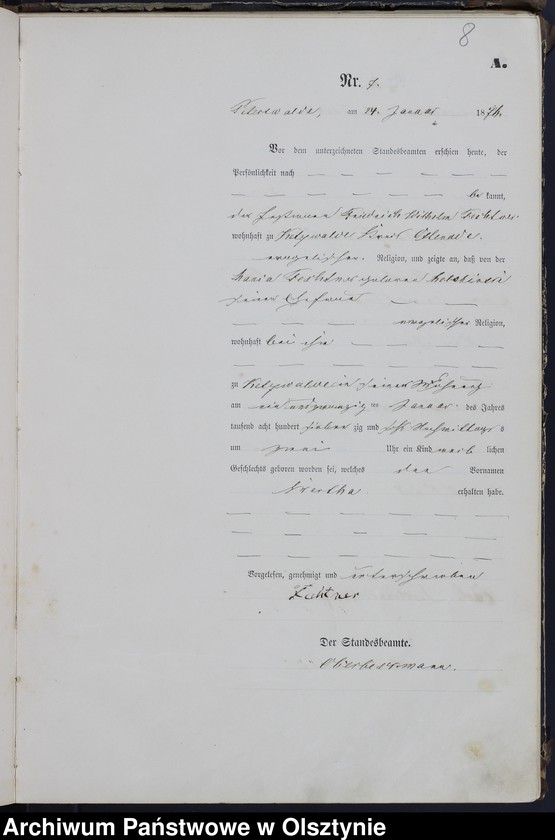 8
A.
Nr. 7.
am 24. Januar 1876.
Vor dem unterzeichneten Standesbeamten erschien heute, der
Persönlichkeit nach
be kannt,
der Friedrich Wilhelm
wohnhaft zu Kreis
evangelischer Religion, und zeigte an, daß von der
Maria geborenen
seiner Ehefrau
evangelischer Religion,
wohnhaft bei ihm
zu in seiner Wohnung
am ein und zwanzig ten Januar des Jahres
tausend acht hundert sieben zig und sechs Nachmittags
um zwei Uhr ein Kind weib lichen
Geschlechts geboren worden sei, welches den Vornamen
erhalten habe.
Vorgelesen, genehmigt und unterschrieben
Der Standesbeamte.
Archiwum Państwowe w Olsztynie